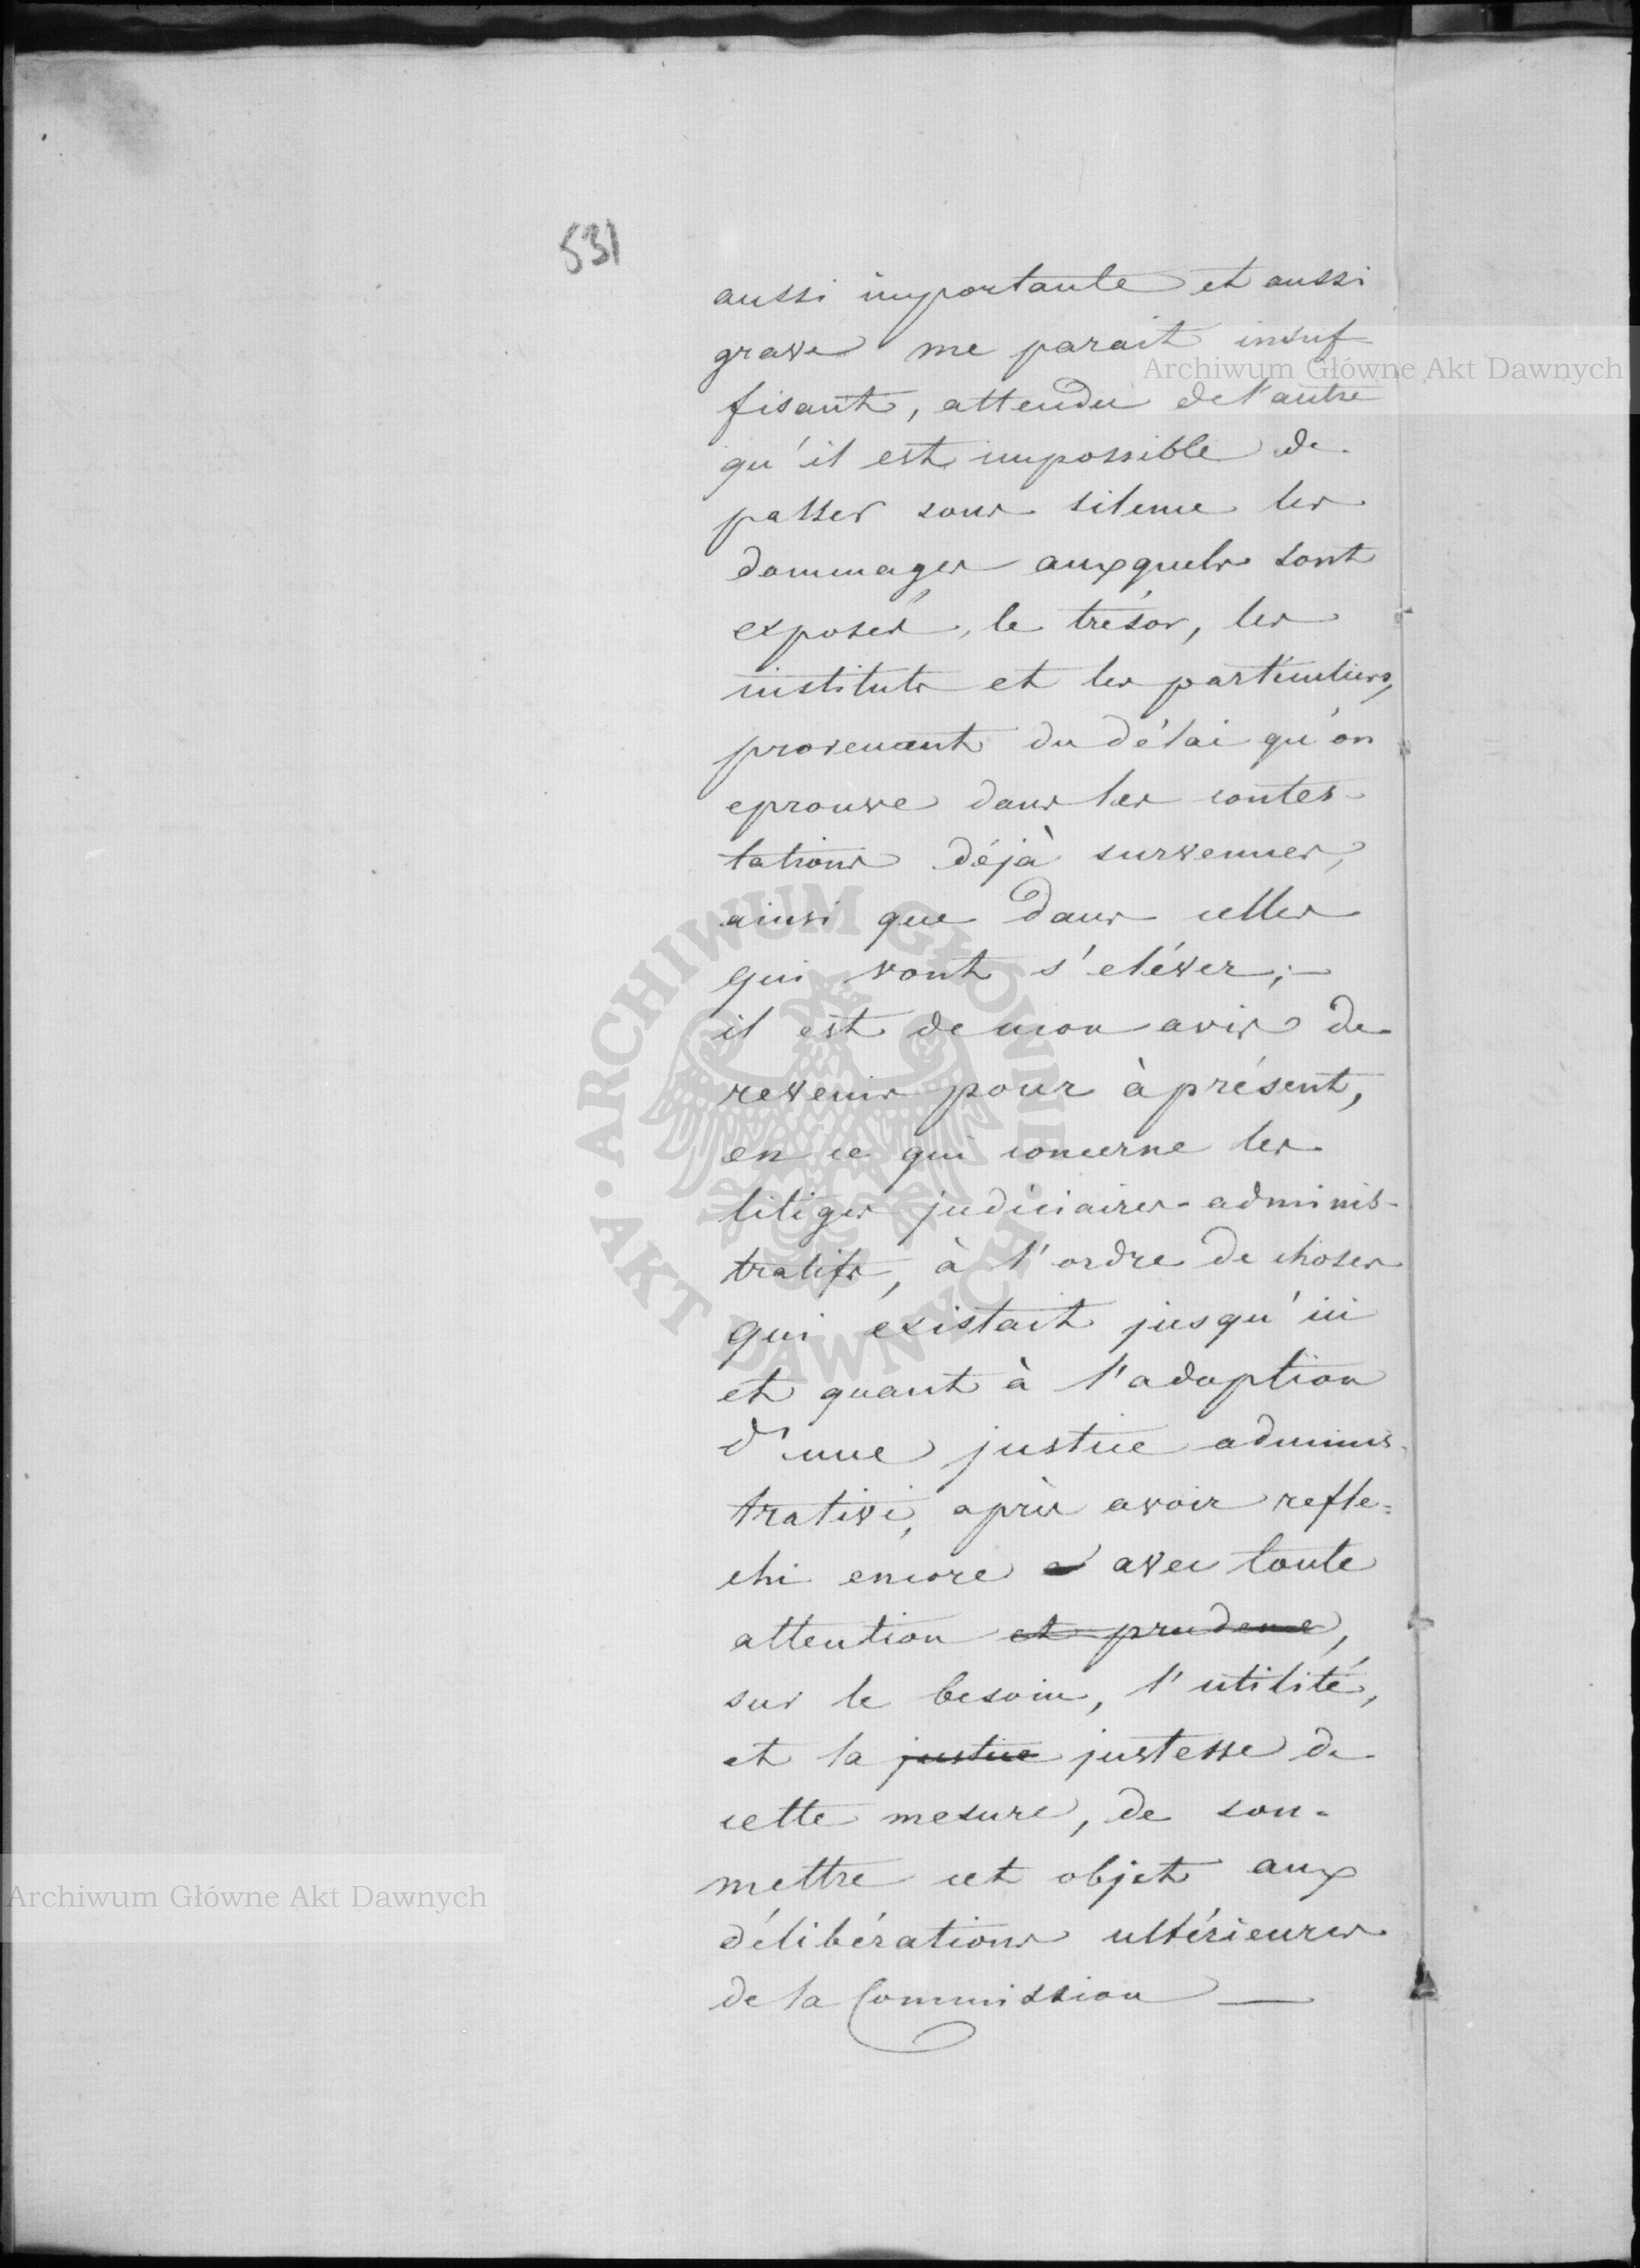 531
aussi importante et aussi
grave me parait insuf-
fisant, attendu de l'autre
qu'il est impossible de
passer sous silence les
dommages auxquels sont
exposés, le trésor, les
instituts et les particuliers,
provenant du délai qu'on
eprouve dans les contes-
tations déjà survenues,
ainsi que dans celles
qui vont s'eléver; —
il est de mon avis de
revenir pour à présent,
en ce qui concerne les
litiges judiciaires-adminis-
tratifs, à l'ordre de choses
qui existait jusqu'ici
et quant à l'adoption
d'une justice adminis-
trative, après avoir refle=
chi encore avec toute
attention et prudence,
sur le besoin, l'utilité,
et la justice justesse de
cette mesure, de sou-
mettre cet objet aux
délibérations ultérieures
de la Commission —
Archiwum Główne Akt Dawnych
ARCHIWUM GŁÓWNE · AKT DAWNYCH ·
Archiwum Główne Akt Dawnych